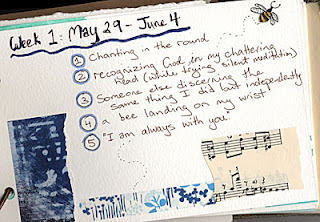 Week 1: May 29 - June 4
1 Chanting in the round
2 recognizing God in my chattering
head (while trying silent meditation)
3 Someone else discerning the
same thing I did but independently
4 a bee landing on my wrist
5 "I am always with you"